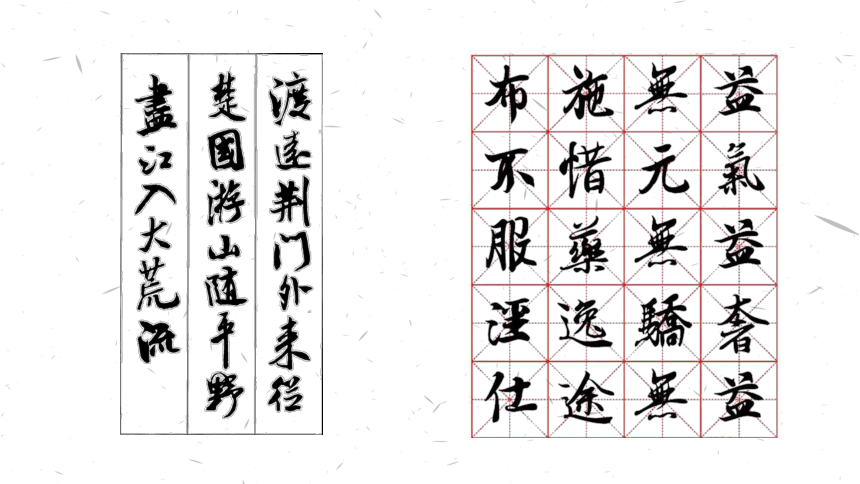 渡遠荆门外来從
楚國游山随平野
盡江入大荒流
布施無益
不惜元氣
服藥無益
淫逸驕奢
仕途無益